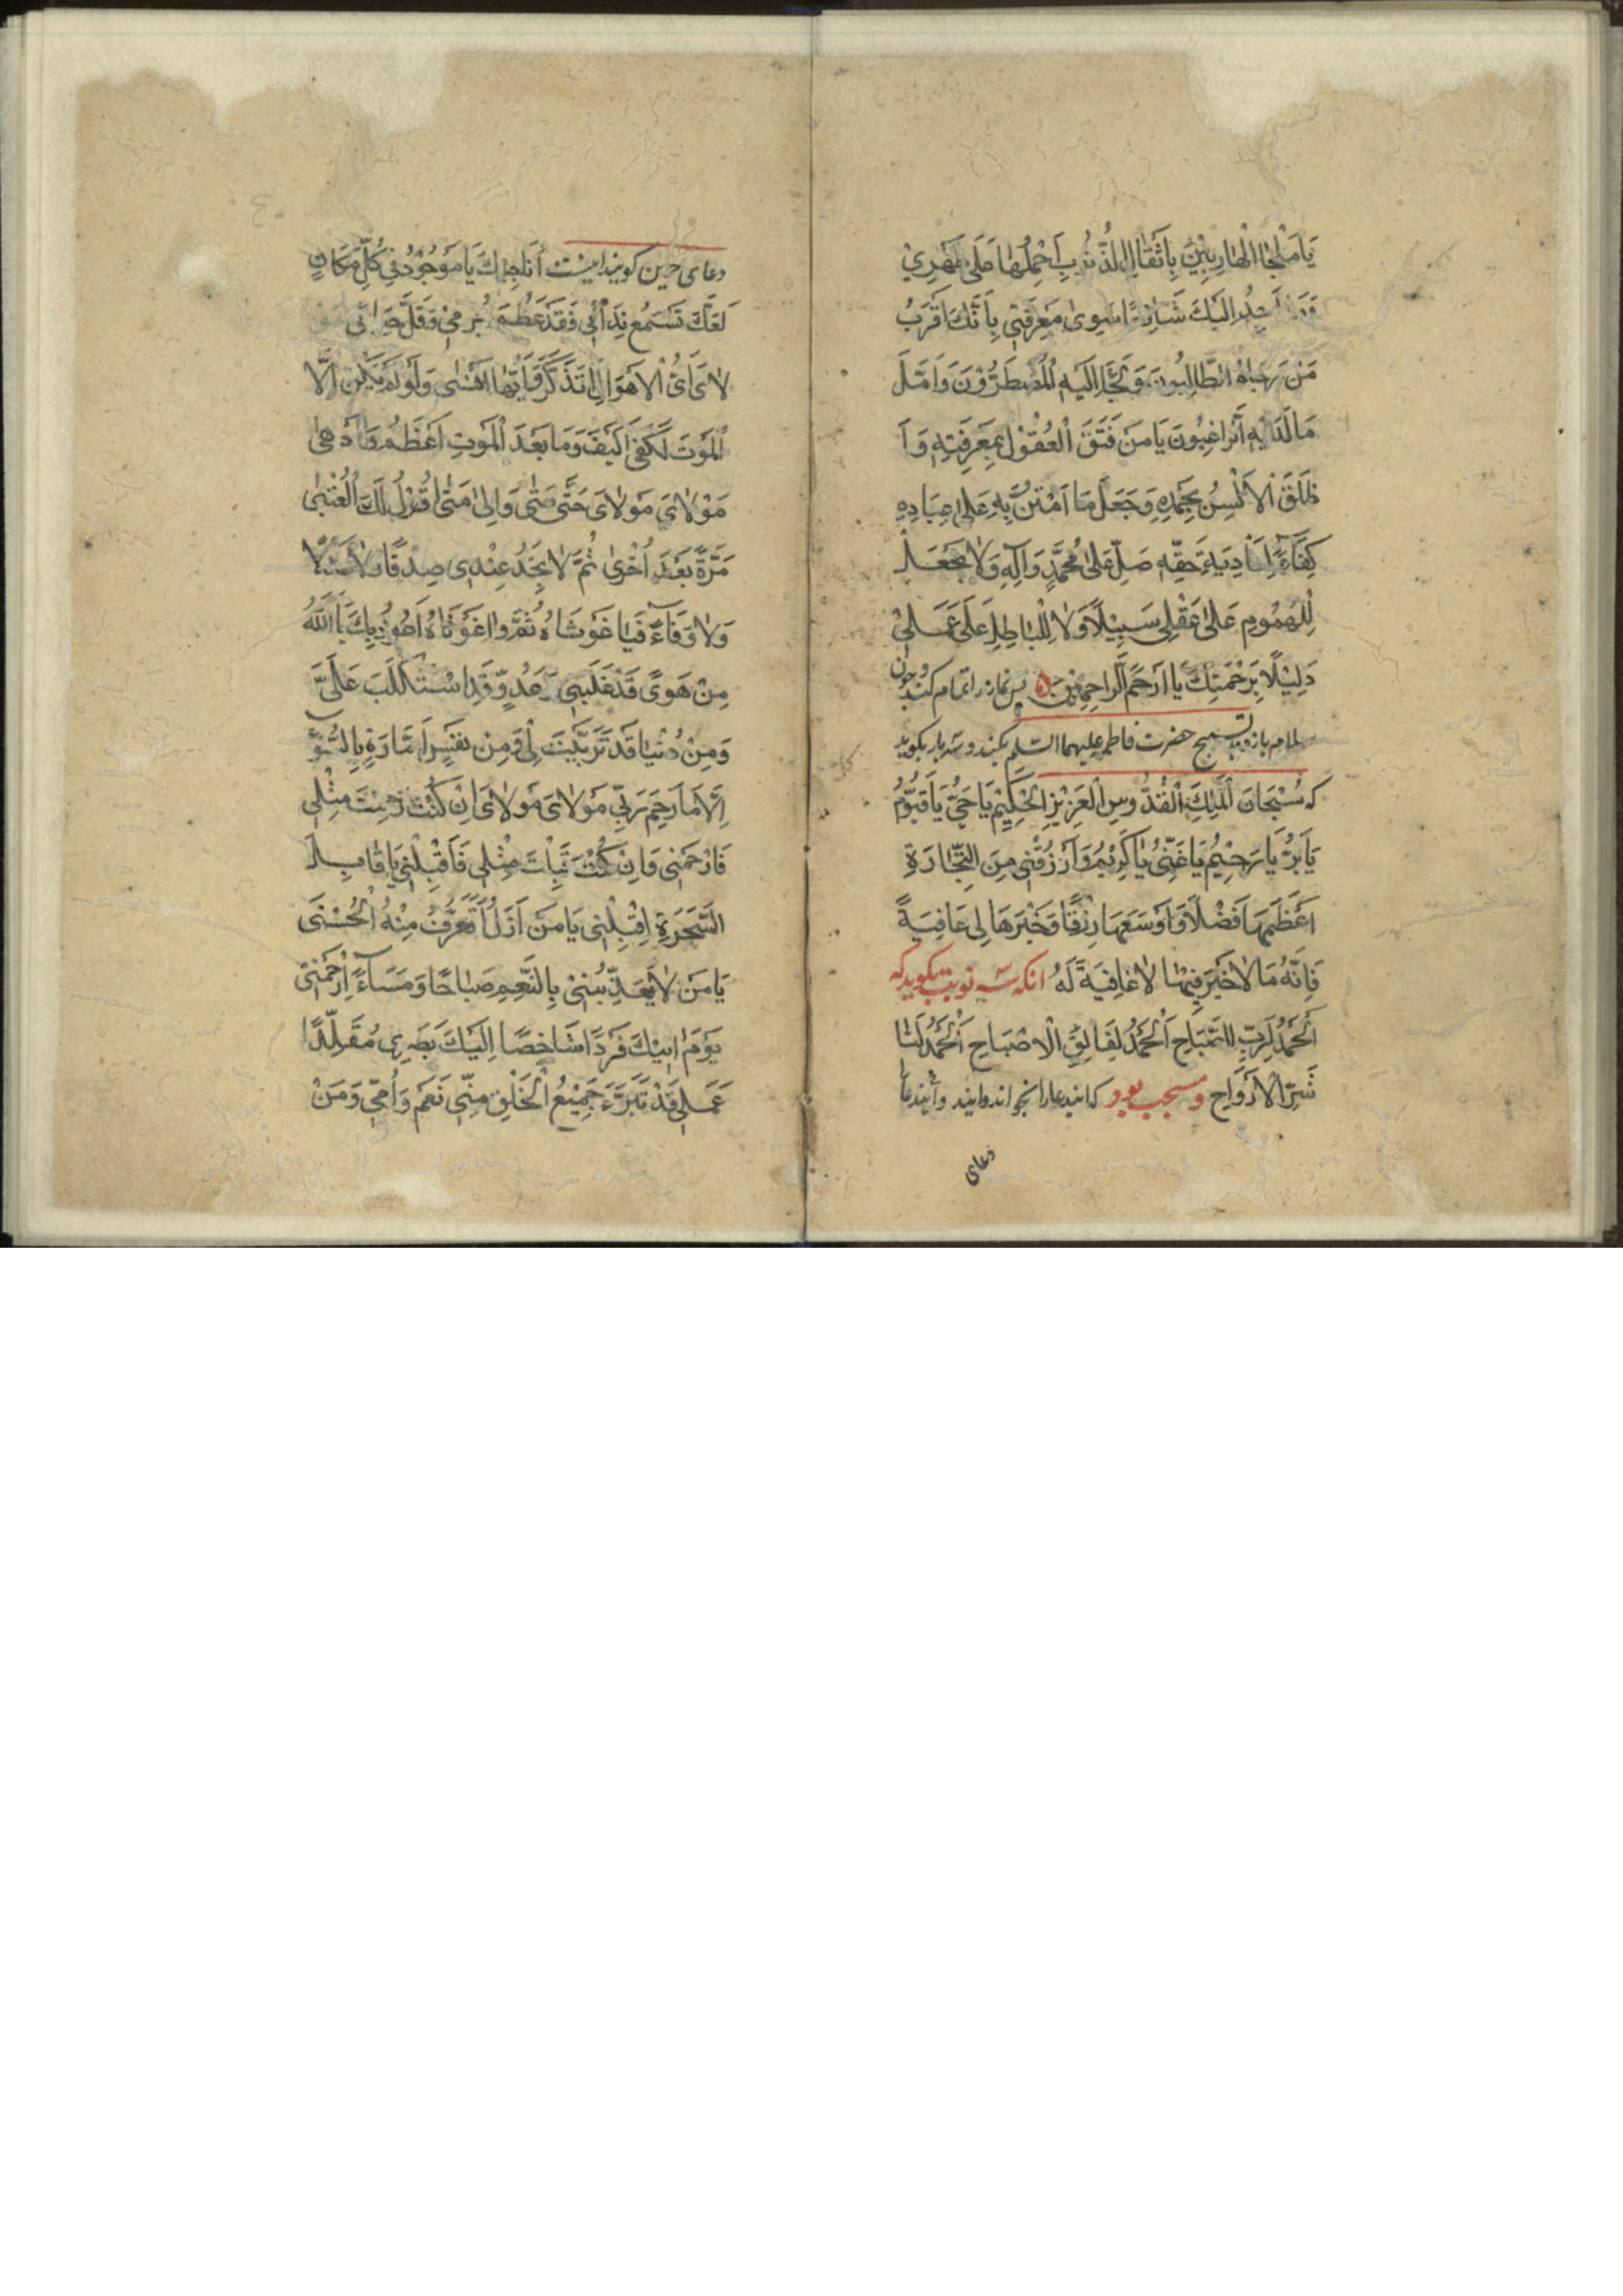 يَا مَلْجَأَ الْهَارِبِيْنَ بِاَثْقَالِ الذُّنُوبِ اَحْمِلُهَا عَلَى ظَهْرِيْ
اَجِدُ اِلَيْكَ شَافِعًا سِوىٰ مَعْرِفَتِى بِاَنَّكَ اَقْرَبُ
مَنْ رَجَاهُ الطَّالِبُونَ وَلَجَأَ اِلَيْهِ الْمُضْطَرُّوْنَ وَاَمَّلَ
مَا لَدَيْهِ الرَّاغِبُونَ يَا مَنْ فَتَقَ الْعُقُوْلَ بِمَعْرِفَتِهِ وَ اَ
طْلَقَ الْاَلْسُنَ بِحَمْدِهِ وَجَعَلَ مَا امْتَنَّ بِهِ عَلىٰ عِبَادِهِ
كِفَاءً لِتَأْدِيَةِ حَقِّهِ صَلِّ عَلىٰ مُحَمَّدٍ وَآلِهِ وَلَا تَجْعَلْ
لِلْهُمُومِ عَلىٰ عَقْلِى سَبِيْلًا وَلَا لِلْبَاطِلِ عَلَى عَمَلِيْ
دَلِيْلًا بِرَحْمَتِكَ يَا اَرْحَمَ الرَّاحِمِيْنَ پس نماز را تمام كند و چون
سلام باز دهد تسبيح حضرت فاطمه عليهما السّلم بكند و سه بار بكويد
كه سُبْحَانَ الْمَلِكِ الْقُدُّوسِ الْعَزِيْزِ الْحَكِيْمِ يَا حَىُّ يَا قَيُّوْمُ
يَا بَرُّ يَا رَحِيْمُ يَا غَنِىُّ يَا كَرِيْمُ وَارْزُقْنِى مِنَ التِّجَارَةِ
اَعْظَمَهَا فَضْلًا وَاَوْسَعَهَا رِزْقًا وَخَيْرَهَا لِى عَافِيَةً
فَاِنَّهُ مَا لَا خَيْرَ فِيْهَا لَا عَافِيَةَ لَهُ انكه سه نوبت بكويد كه
اَلْحَمْدُ لِرَبِّ الصَّبَاحِ اَلْحَمْدُ لِفَالِقِ الْاِصْبَاحِ اَلْحَمْدُ لِنَا
شِرِ الْاَرْوَاحِ و مستحب بود كه اين دعا را بخوانند و اين دعا
دعاى
دعاى حزين كويند اينست أُنَاجِيْكَ يَا مَوْجُوْدُ فِى كُلِّ مَكَانٍ
لَعَلَّكَ تَسْمَعُ نِدَائِى فَقَدْ عَظُمَ جُرْمِىْ وَقَلَّ حَيَائِى
مَوْلَاىَ اَىَّ الْاَهْوَالِ اَتَذَكَّرُ وَاَيَّهَا اَنْسٰى وَلَوْ لَمْ يَكُنْ اِلَّا
الْمَوْتُ لَكَفىٰ كَيْفَ وَمَا بَعْدَ الْمَوْتِ اَعْظَمُ وَاَدْهىٰ
مَوْلَاىَ مَوْلَاىَ حَتّٰى مَتٰى وَاِلىٰ مَتٰى اَقُوْلُ لَكَ الْعُتْبىٰ
مَرَّةً بَعْدَ اُخْرىٰ ثُمَّ لَا تَجِدُ عِنْدِى صِدْقًا
وَلَا وَفَاءً فَيَا غَوْثَاهُ ثُمَّ وَاغَوْثَاهُ اَعُوْذُ بِكَ يَا اَللّٰهُ
مِنْ هَوىً قَدْ غَلَبَنِى عَدُوٍّ قَدِ اسْتَكْلَبَ عَلَىَّ
وَمِنْ دُنْيَا قَدْ تَزَيَّنَتْ لِىْ وَمِنْ نَفْسٍ اَمَّارَةٍ بِالسُّوْءِ
اِلَّا مَا رَحِمَ رَبِّى مَوْلَاىَ مَوْلَاىَ اِنْ كُنْتَ رَحِمْتَ مِثْلِى
فَارْحَمْنِى وَاِنْ كُنْتَ قَبِلْتَ مِثْلِى فَاقْبِلْنِى يَا قَابِلَ
السَّحَرَةِ اِقْبِلْنِى يَا مَنْ لَمْ اَزَلْ اَتَعَرَّفُ مِنْهُ الْحُسْنَى
يَا مَنْ لَا يُعَذِّبُنِىْ بِالنَّعِيْمِ صَبَاحًا وَمَسَاءً اِرْحَمْنِىْ
يَوْمَ اٰتِيْكَ فَرْدًا شَاخِصًا اِلَيْكَ بَصَرِى مُقَلَّدًا
عَمَلِى قَدْ تَبَرَّءَ جَمِيْعُ الْخَلْقِ مِنِّى نَعَمْ وَاُمِّى وَمَنْ